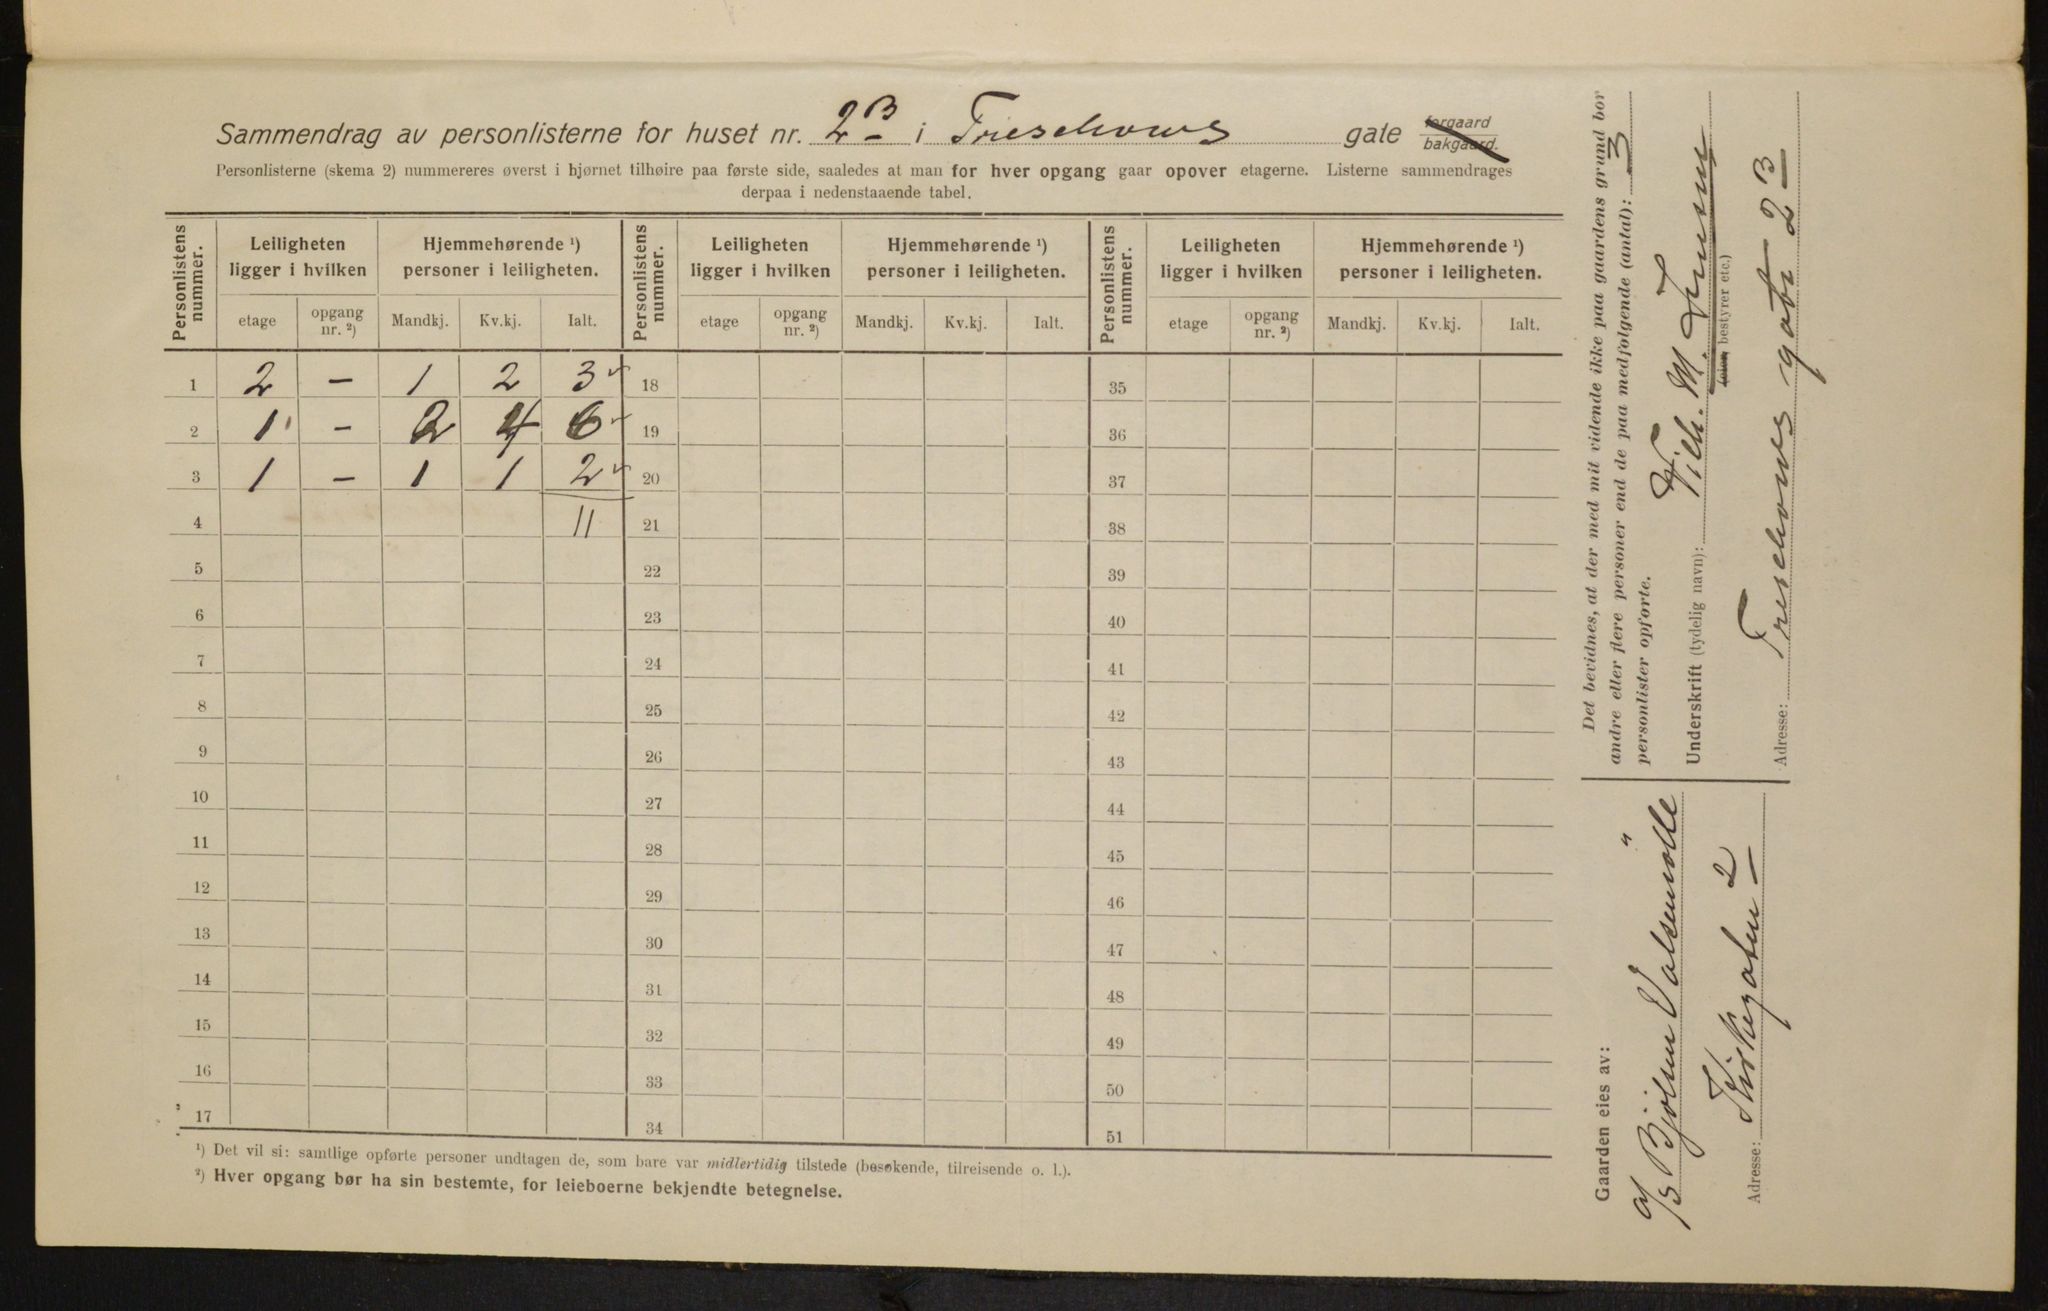 Sammendrag av personlisterne for huset nr. 2B i Treschows gate forgaard bakgaard.
Personlisterne (skema 2) nummereres øverst i hjørnet tilhøire paa første side, saaledes at man for hver opgang gaar opover etagerne. Listerne sammendrages
derpaa i nedenstaaende tabel.
Personlistens nummer. Leiligheten ligger i hvilken Hjemmehørende ¹) personer i leiligheten. Personlistens nummer. Leiligheten ligger i hvilken Hjemmehørende ¹) personer i leiligheten. Personlistens nummer. Leiligheten ligger i hvilken Hjemmehørende ¹) personer i leiligheten.
etage opgang nr. ²) Mandkj. Kv.kj. Ialt. etage opgang nr. ²) Mandkj. Kv.kj. Ialt. etage opgang nr. ²) Mandkj. Kv.kj. Ialt.
1 2 – 1 2 3 18 35
2 1 – 2 4 6 19 36
3 1 – 1 1 2 20 37
4 11 21 38
5 22 39
6 23 40
7 24 41
8 25 42
9 26 43
10 27 44
11 28 45
12 29 46
13 30 47
14 31 48
15 32 49
16 33 50
17 34 51
¹) Det vil si: samtlige opførte personer undtagen de, som bare var midlertidig tilstede (besøkende, tilreisende o. l.).
²) Hver opgang bør ha sin bestemte, for leieboerne bekjendte betegnelse.
Det bevidnes, at der med mit vidende ikke paa gaardens grund bor
andre eller flere personer end de paa medfølgende (antal): 3
personlister opførte.
Underskrift (tydelig navn): Vilh. M.
(eier, bestyrer etc.)
Adresse: Treschows gate 2 B
Gaarden eies av:
A/S Bjölsen Valsemölle
Adresse: Kirkegaten 2